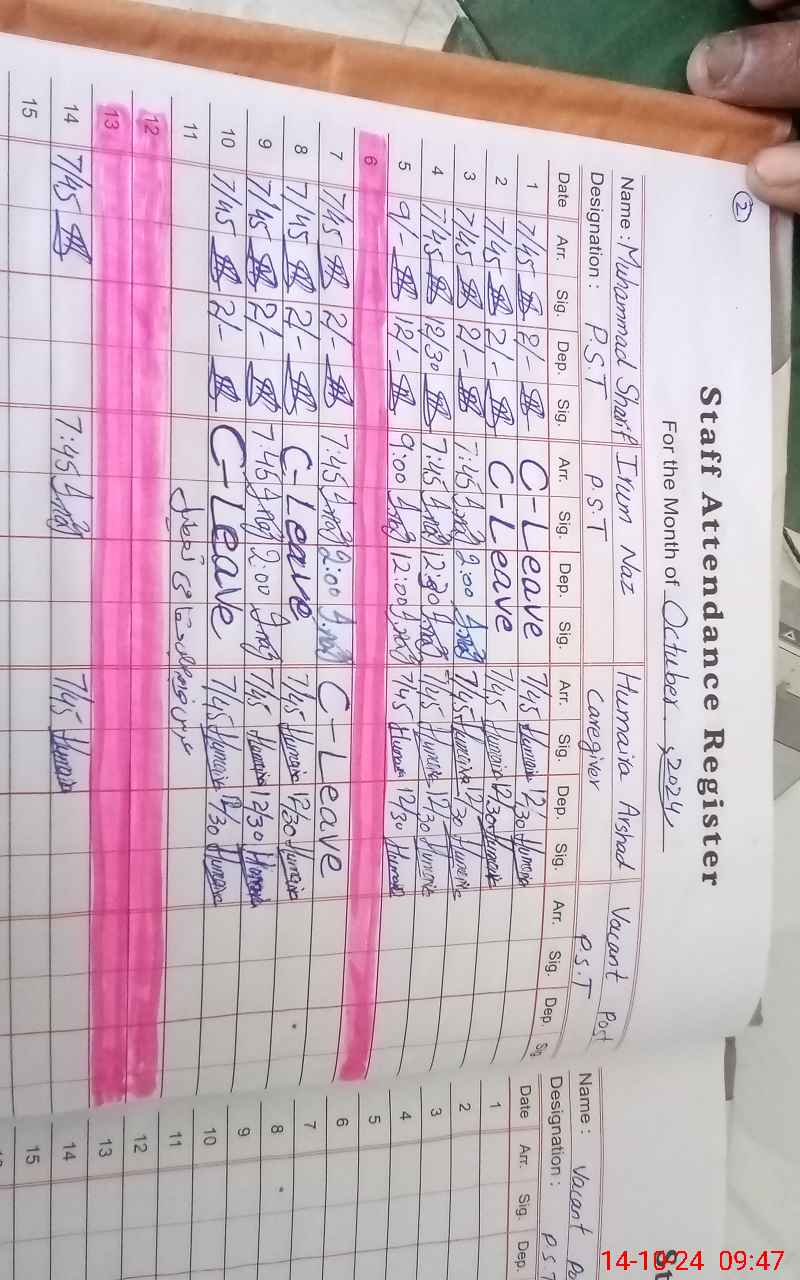 2
Staff Attendance Register
For the Month of October , 2024
Name : Muhammad Sharif Irum Naz Humaira Arshad Vacant Post
Designation : P.S.T P.S.T Caregiver P.S.T
Date Arr. Sig. Dep. Sig. Arr. Sig. Dep. Sig. Arr. Sig. Dep. Sig. Arr. Sig. Dep. Sig
1 7/45 2/- C-Leave 7/45 Humaira 12/30 Humaira
2 7/45 2/- C-Leave 7/45 Humaira 12/30 Humaira
3 7/45 2/- 7:45 2:00 7/45 Humaira 12/30 Humaira
4 7/45 12/30 7:45 12:30 7/45 Humaira 12/30 Humaira
5 9/- 12/- 9:00 12:00 7/45 Humaira 12/30 Humaira
6
7 7/45 2/- 7:45 2:00 C-Leave
8 7/45 2/- C-Leave 7/45 Humaira 12/30 Humaira
9 7/45 2/- 7:45 2:00 7/45 Humaira 12/30 Humaira
10 7/45 2/- C-Leave 7/45 Humaira 12/30 Humaira
11
12
13
14 7/45 7:45 7/45 Humaira
15
St
Name : Vacant Po
Designation : P.S.T
Date Arr. Sig. Dep.
1
2
3
4
5
6
7
8
9
10
11
12
13
14
15
14-10-24 09:47